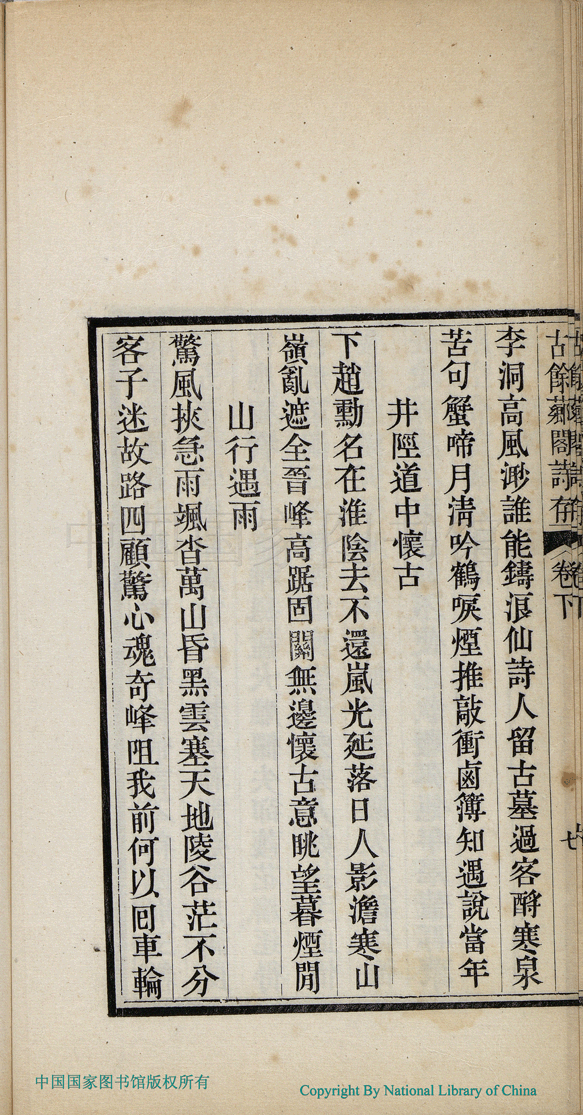 古餘薌閣詩存 卷下 七
李洞高風渺誰能鑄浪仙詩人留古墓過客酹寒泉
苦句蟹啼月淸吟鶴唳煙推敲衝鹵簿知遇說當年
井陘道中懷古
下趙勳名在淮陰去不還嵐光延落日人影澹寒山
嶺亂遮全晉峰高踞固關無邊懷古意眺望暮煙閒
山行遇雨
驚風挾急雨颯沓萬山昏黑雲塞天地陵谷茫不分
客子迷故路四顧驚心魂奇峰阻我前何以囘車輪
中国国家图书馆版权所有
Copyright By National Library of China